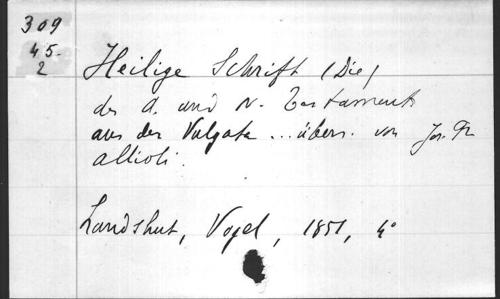 309
45.
2
Heilige Schrift (Die)
des A. und N. Testaments
aus der Vulgata ... übers. von Jos. Fr
Allioli.
Landshut, Vogel, 1851, 4°